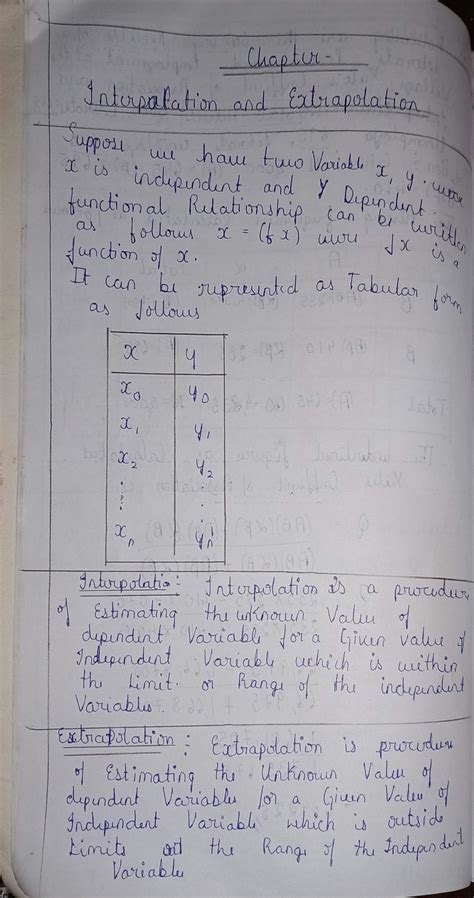 Chapter-
Interpalation and Extrapolation
Suppose we have two Variable x, y. were
x is independent and y Dependent.
functional Relationship can be written
as follows x = (f x) were fx is a
function of x.
It can be represented as Tabular form
as follows
x y
x0 y0
x1 y1
x2 y2
⋮ ⋮
xn yn
Interpolatin: Interpolation is a procedure
of Estimating the unknown Value of
dependent Variable for a Given value of
Independent Variable which is within
the Limit or Range of the independent
Variables.
Extrapolation: Extrapolation is procedure
of Estimating the Unknown Value of
dependent Variable for a Given Value of
Independent Variable which is outside
Limits the Range of the Independent
Variable